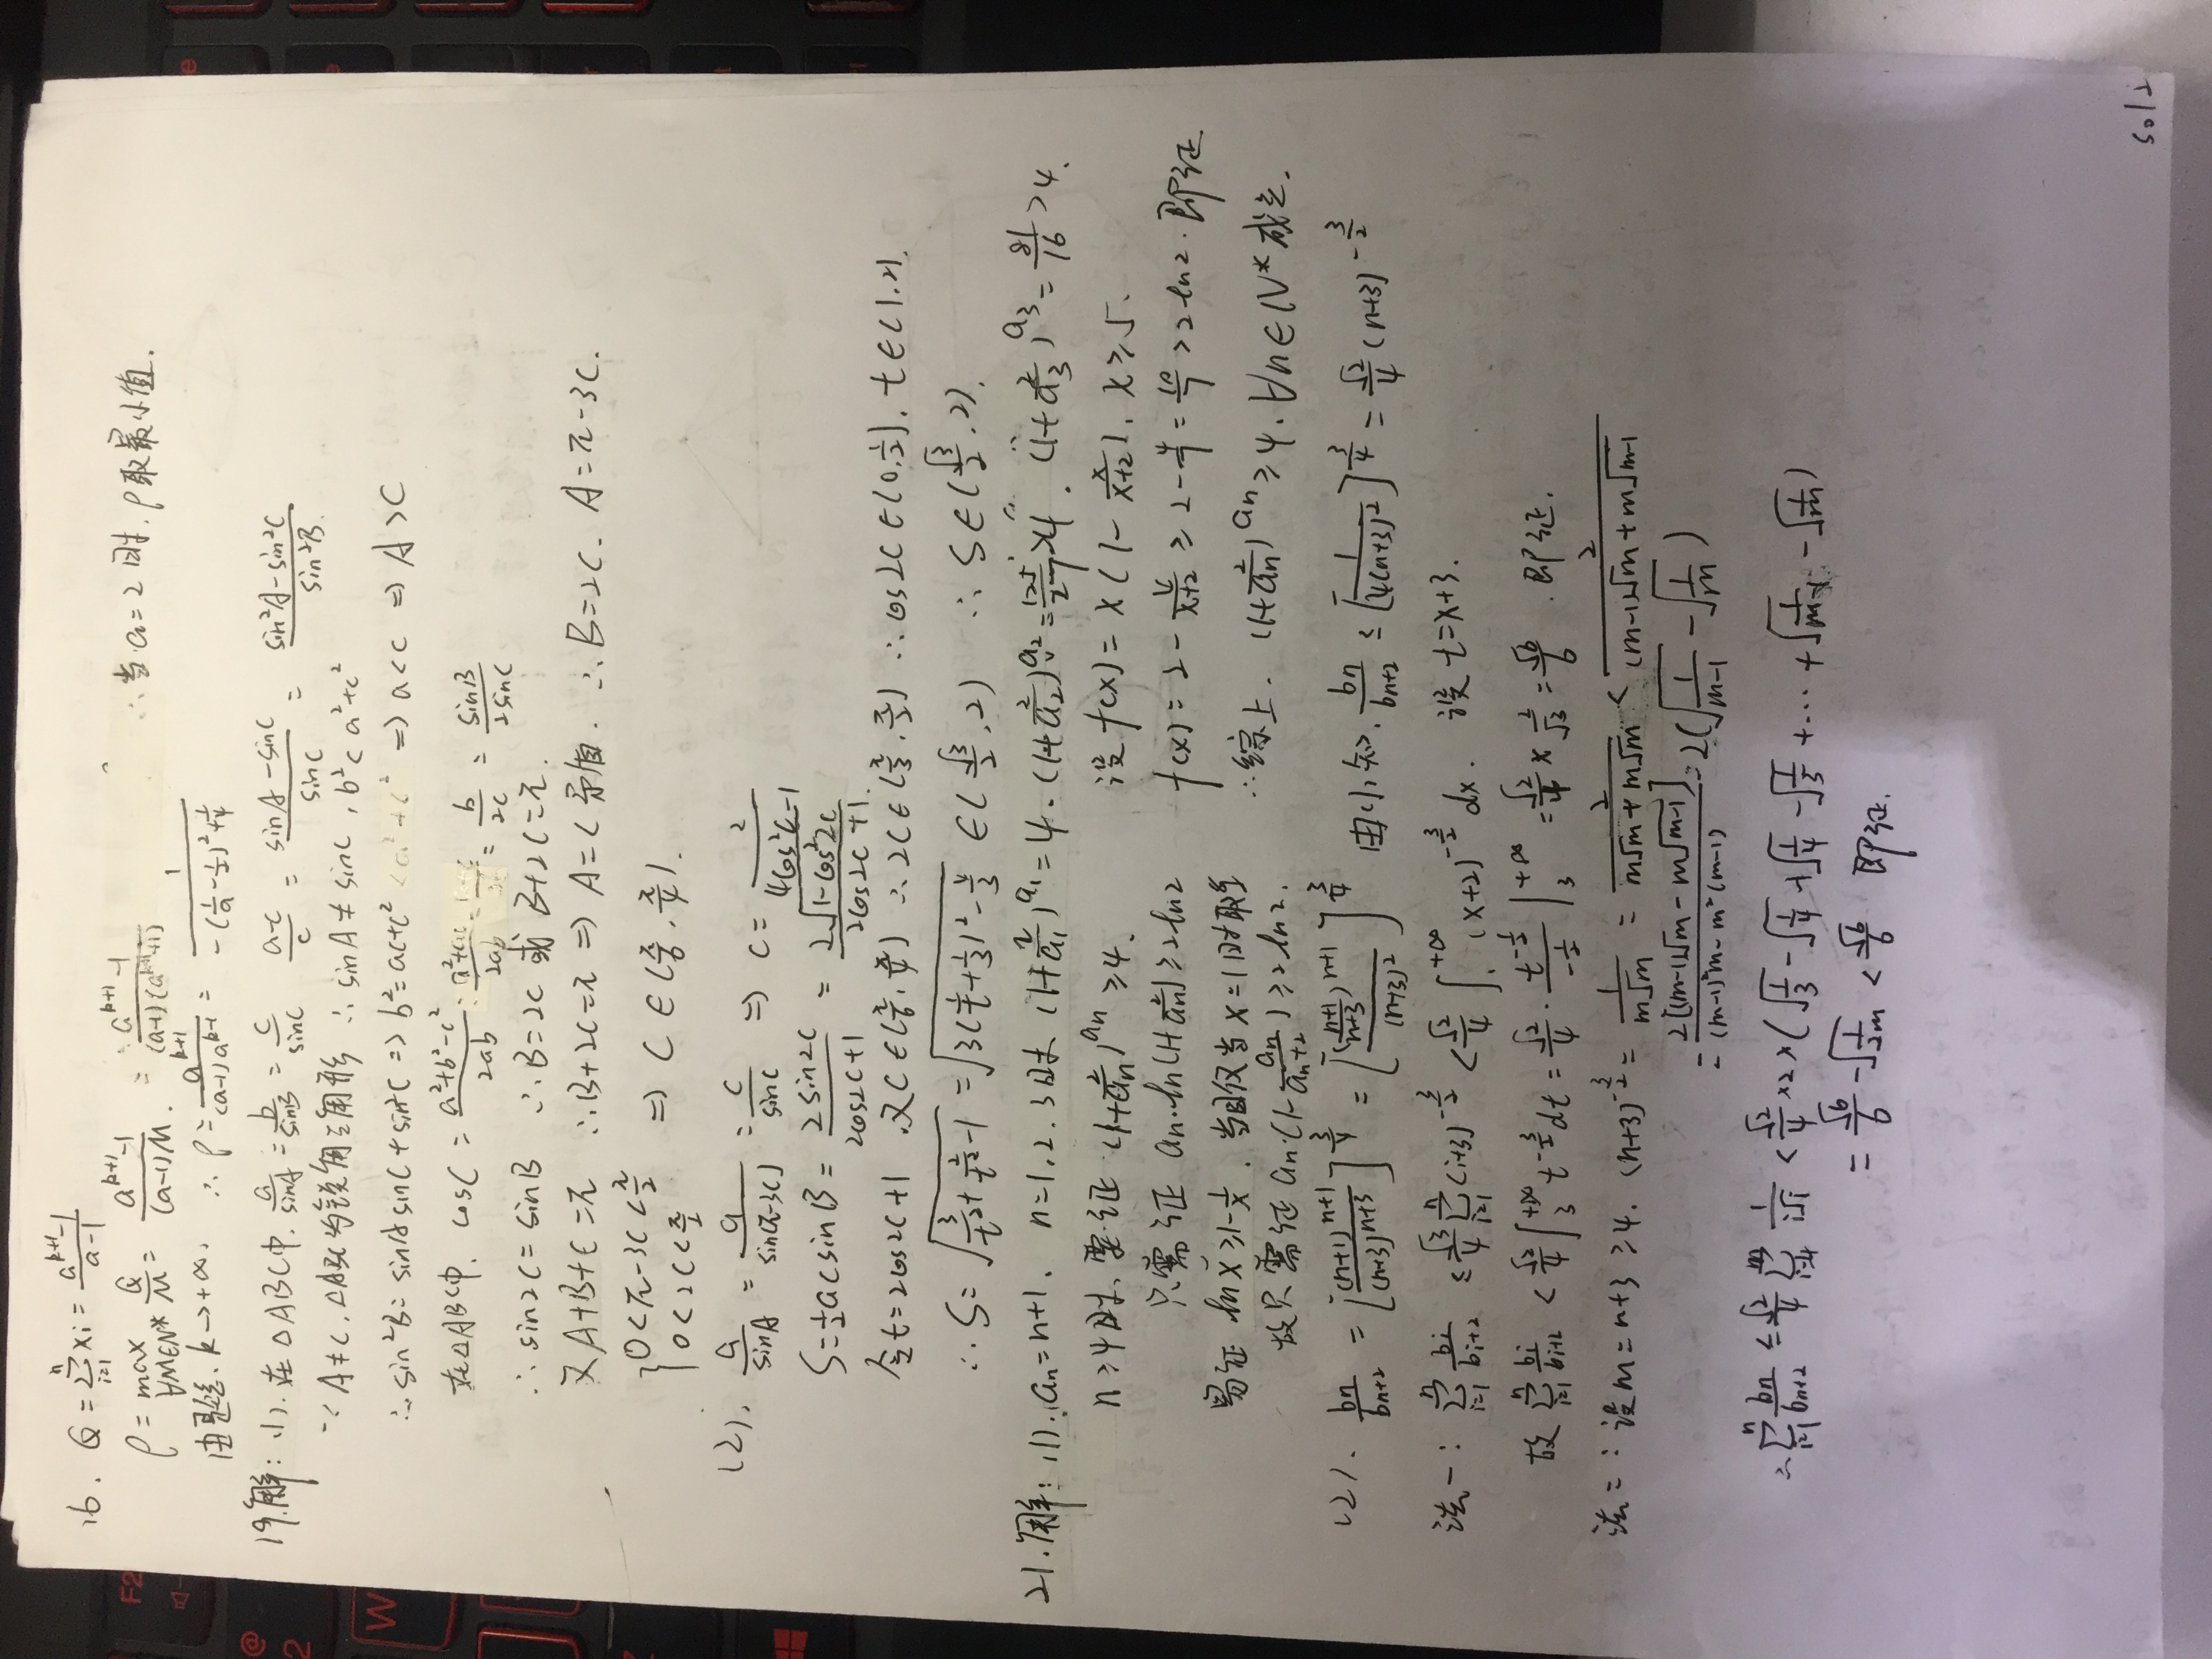 16. Q = \sum_{i=1}^{n} x_i = \frac{a^{k+1}-1}{a-1}
ρ = \max_{∀M∈N*} \frac{Q}{M} = \frac{a^{k+1}-1}{(a-1)M} = \frac{a^{k+1}-1}{(a-1)(a^{k-1}+1)} ∴当a=2时,ρ取最小值.
由题意,k→+∞, ∴ρ = \frac{a^{k+1}}{(a-1)a^{k-1}} = \frac{1}{-(\frac{1}{a}-\frac{1}{2})^2+\frac{1}{4}}
19.解:(1).在△ABC中.\frac{a}{sinA} = \frac{b}{sinB} = \frac{c}{sinC} \frac{a-c}{c} = \frac{sinA-sinC}{sinC} = \frac{sin^2A-sin^2C}{sin^2B}.
∵A≠C,△ABC为锐角三角形 ∴sinA≠sinC,b^2<a^2+c^2
∴sin^2B=sinAsinC+sin^2C⇒b^2=ac+c^2<a^2+c^2⇒a<c⇒A>C
在△ABC中,cosC = \frac{a^2+b^2-c^2}{2ab} = \frac{a^2+ac}{2ab} = = \frac{b}{2c} = \frac{sinB}{2sinC}
∴sin2C=sinB ∴B=2C或B+2C=π.
又A+B+C=π ∴B+2C=π⇒A=C矛盾. ∴B=2C. A=π-3C.
{0<π-3C<\frac{π}{2}
0<2C<\frac{π}{2} ⇒C∈(\frac{π}{6},\frac{π}{4}).
(2). \frac{a}{sinA} = \frac{a}{sin(π-3C)} = \frac{c}{sinC} ⇒ c = \frac{2}{4cos^2C-1}
S=\frac{1}{2}acsinB = \frac{2sin2C}{2cos2C+1} = \frac{2\sqrt{1-cos^22C}}{2cos2C+1}.
令t=2cos2C+1 又C∈(\frac{π}{6},\frac{π}{4}) ∴2C∈(\frac{π}{3},\frac{π}{2}) ∴cos2C∈(0,\frac{1}{2}),t∈(1,2).
∴S=\sqrt{\frac{3}{t^2}+\frac{2}{t^2}-1} = \sqrt{3(\frac{1}{t}+\frac{1}{3})^2-\frac{4}{3}} ∈(\frac{\sqrt{3}}{2},2) ∴S∈(\frac{\sqrt{3}}{2},2).
21.解:(1).a_n=n+1. n=1,2,3时(1+\frac{2}{a_1})^{a_1}=4.(1+\frac{2}{a_2})^{a_2}=\frac{125}{27}>4.(1+\frac{2}{a_3})^{a_3}=\frac{81}{16}>4.
n≥4时,要证(1+\frac{2}{a_n})^{a_n}≥4.
只需证 a_n·ln(1+\frac{2}{a_n})≥2ln2
易证lnx≥1-\frac{1}{x}.当且仅当x=1时取等
故只需证a_n·(1-\frac{a_n}{a_n+2})≥2ln2.
设f(x)=x(1-\frac{x}{x+2}),x≥5.
f(x)=2-\frac{4}{x+2}≥2-\frac{4}{7}=\frac{10}{7}>2ln2.即证
∴综上.(1+\frac{2}{a_n})^{a_n}≥4.∀n∈N*成立.
(2). \frac{b_n}{b_{n+2}} = [\frac{(n+1)^{n+1}}{(n+3)^{n+3}}]^{\frac{3}{4}} = [\frac{(\frac{n+1}{n+3})^{n+1}}{(n+3)^2}]^{\frac{3}{4}} 由(1)知,\frac{b_n}{b_{n+2}} ≤ [\frac{1}{4(n+3)^2}]^{\frac{3}{4}} = \frac{\sqrt{2}}{4}(n+3)^{-\frac{3}{2}}
法一:\sum_{i=1}^{n}\frac{b_i}{b_{i+2}} ≤ \frac{\sqrt{3}}{4}\sum_{i=1}^{n}(i+3)^{-\frac{3}{2}} < \frac{\sqrt{2}}{4}\int_{1}^{+∞}(x+2)^{-\frac{3}{2}}dx. 设t=x+3.
故\sum_{i=1}^{n}\frac{b_i}{b_{i+2}} < \frac{\sqrt{2}}{4}\int_{3}^{+∞}t^{-\frac{3}{2}}dt = \frac{\sqrt{2}}{4}·\frac{t^{-\frac{1}{2}}}{-\frac{1}{2}}|_{3}^{+∞} = \frac{\sqrt{2}}{4}×\frac{2}{\sqrt{3}} = \frac{\sqrt{6}}{6}.即证.
法二:设m=n+3≥4.(n+3)^{-\frac{3}{2}} = \frac{1}{m\sqrt{m}} = \frac{2}{m\sqrt{m}+m\sqrt{m}} < \frac{2}{(m-1)\sqrt{m}+m\sqrt{m-1}}
= \frac{2[(m-1)\sqrt{m}-m\sqrt{m-1}]}{(m-1)^2m-m^2(m-1)} = 2(\sqrt{\frac{1}{m-1}}-\sqrt{\frac{1}{m}})
∴\sum_{i=1}^{n}\frac{b_n}{b_{n+2}} ≤ \frac{\sqrt{2}}{4}\sum_{i=4}^{m}\frac{1}{i\sqrt{i}} < \frac{\sqrt{2}}{4}×2×(\sqrt{\frac{1}{3}}-\sqrt{\frac{1}{4}}+\sqrt{\frac{1}{4}}-\sqrt{\frac{1}{5}}+…+\sqrt{\frac{1}{m-1}}-\sqrt{\frac{1}{m}})
= \frac{\sqrt{6}}{6}-\sqrt{\frac{1}{2m}} < \frac{\sqrt{6}}{6} 即证.
F2
@
2
W